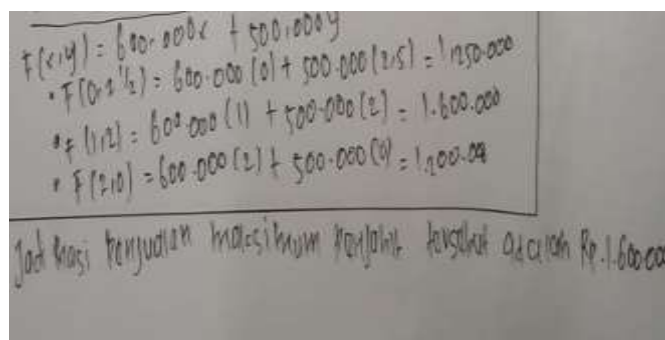 F(x,y) = 600.000x + 500.000y
• F(0,2 1/2) = 600.000 (0) + 500.000 (2,5) = 1.250.000
• F(1,2) = 600.000 (1) + 500.000 (2) = 1.600.000
• F(2,0) = 600.000 (2) + 500.000 (0) = 1.200.00
Jadi hasi penjualan maksimum penjahit tersebut adalah Rp.1.600.000